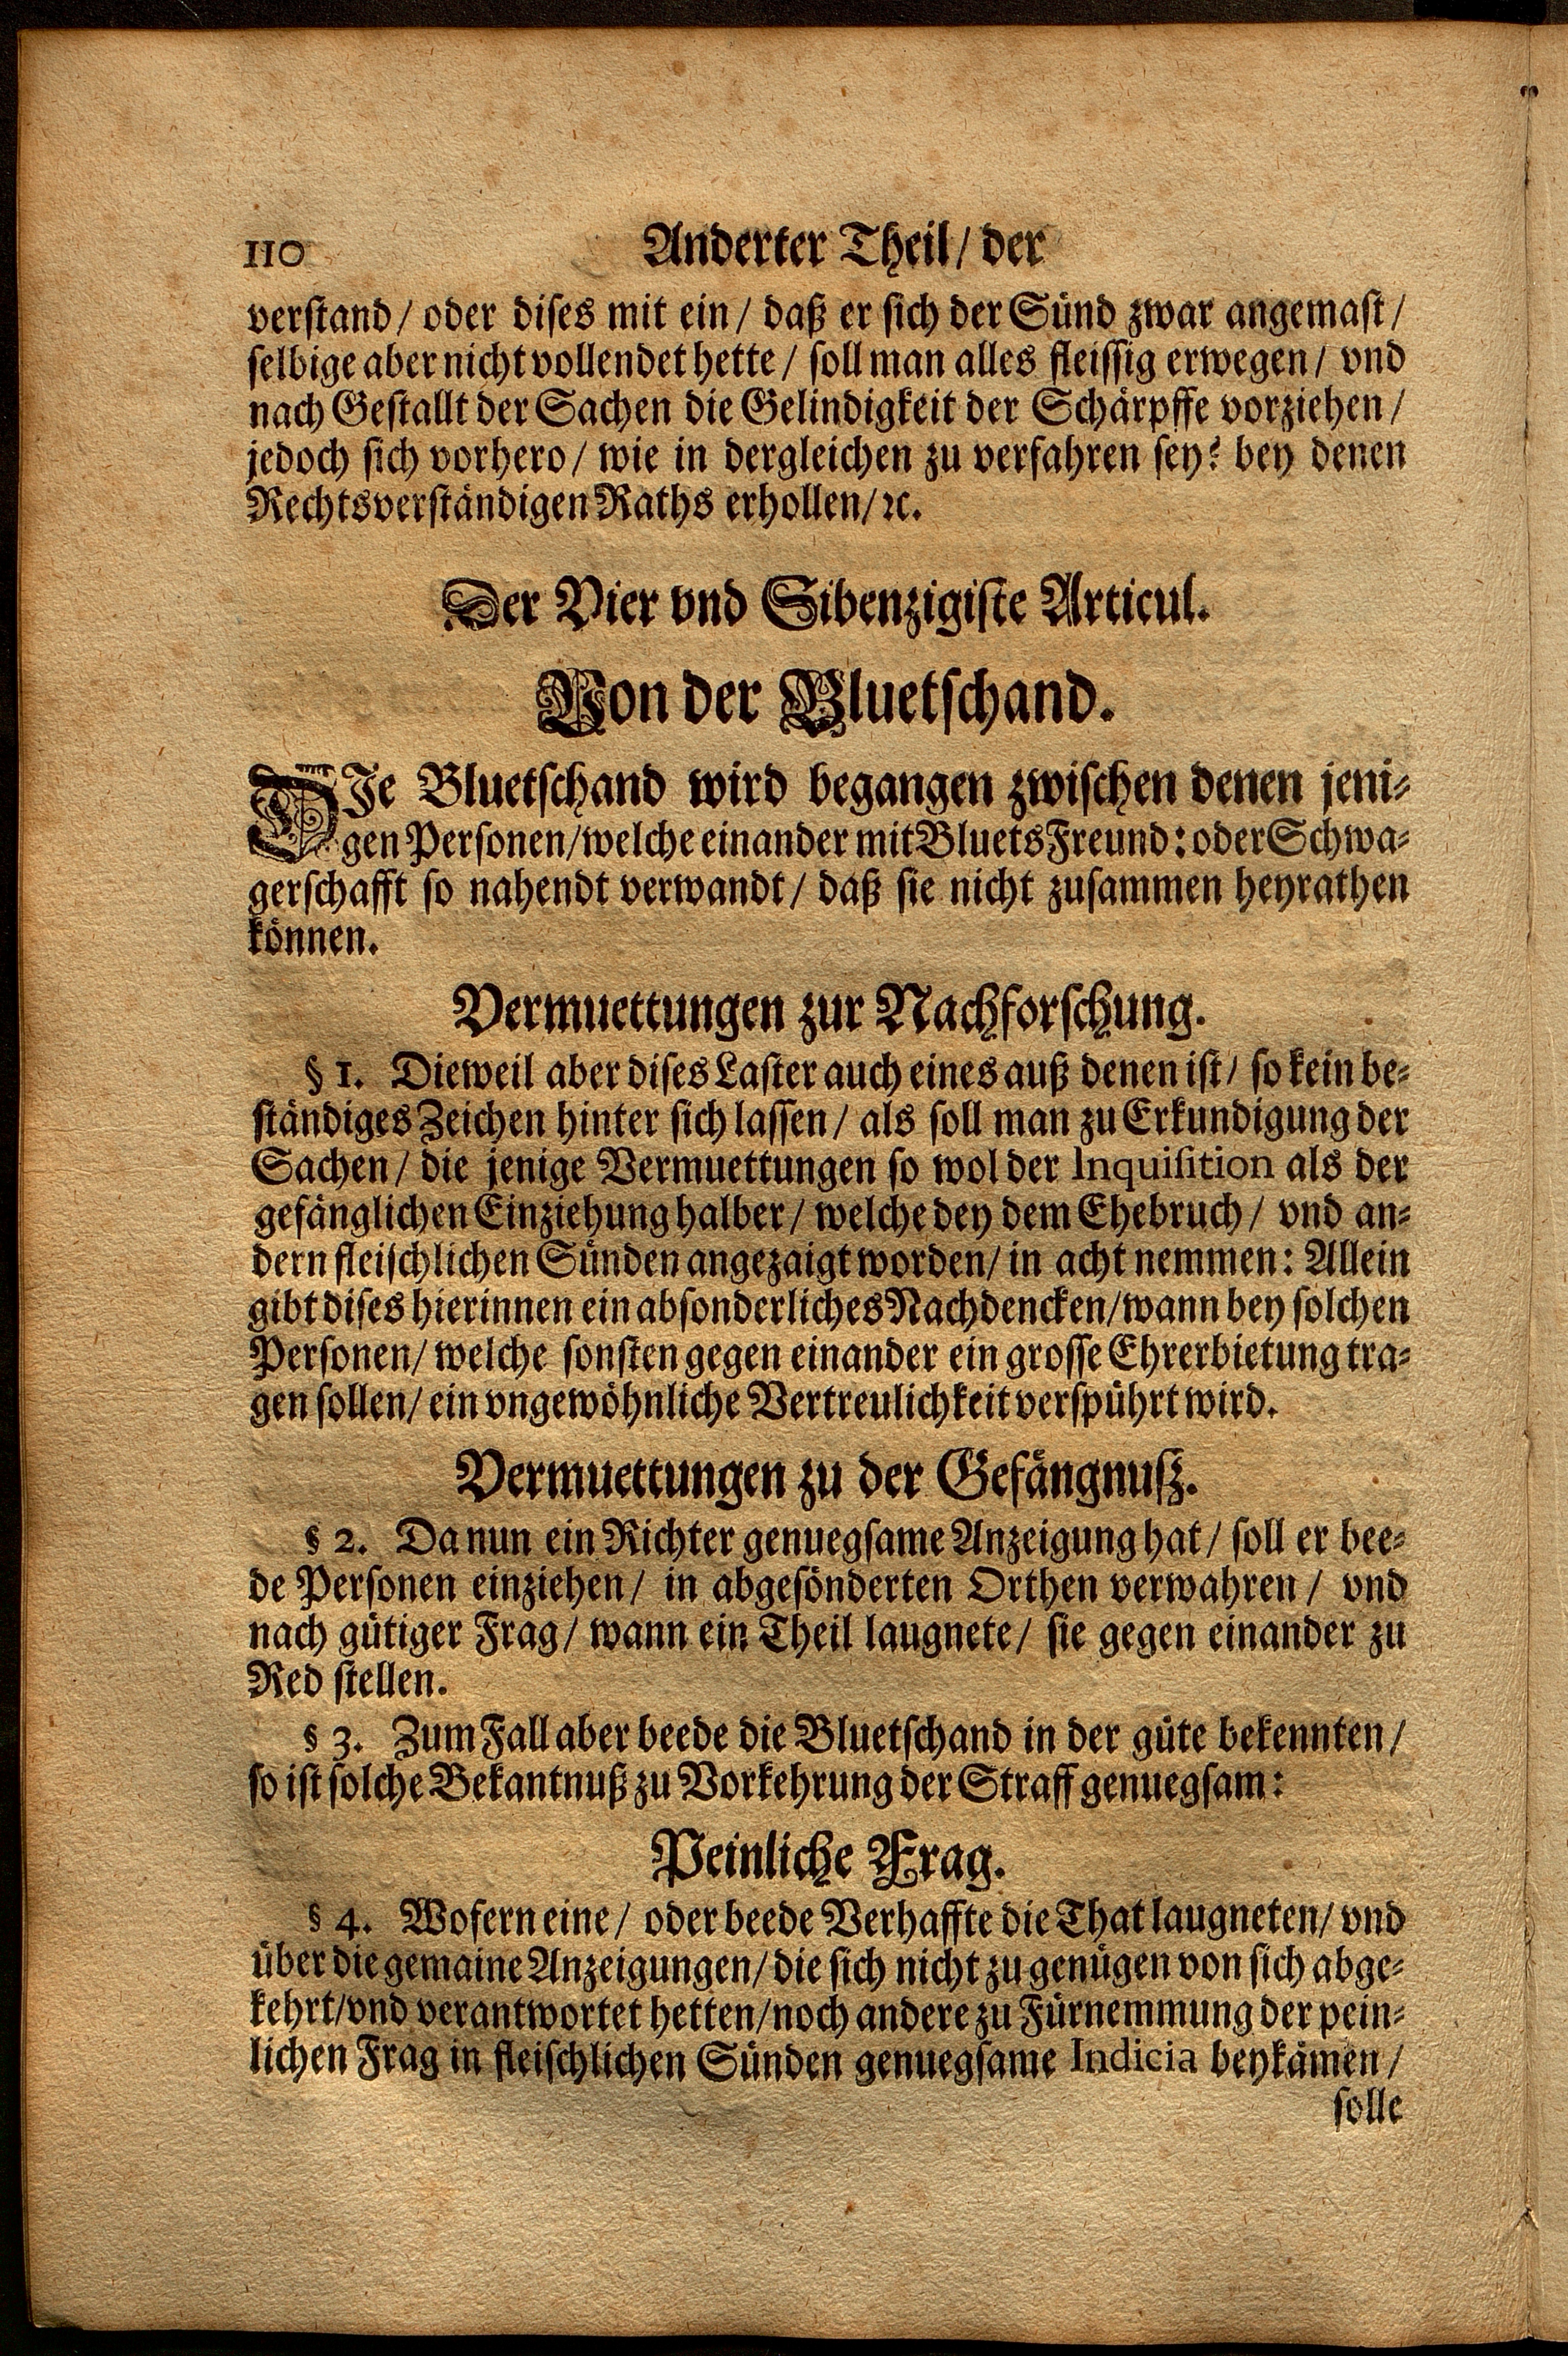 110 Anderter Theil/ der
verstand/ oder dises mit ein/ daß er sich der Sünd zwar angemast/
selbige aber nicht vollendet hette/ soll man alles fleissig erwegen/ vnd
nach Gestallt der Sachen die Gelindigkeit der Schärpffe vorziehen/
jedoch sich vorhero/ wie in dergleichen zu verfahren sey? bey denen
Rechtsverständigen Raths erhollen/ ꝛc.
Der Vier vnd Sibenzigiste Articul.
Von der Bluetschand.
DIe Bluetschand wird begangen zwischen denen jeni-
gen Personen/ welche einander mit Bluets Freund: oder Schwa-
gerschafft so nahendt verwandt/ daß sie nicht zusammen heyrathen
können.
Vermuettungen zur Nachforschung.
§ 1. Dieweil aber dises Laster auch eines auß denen ist/ so kein be-
ständiges Zeichen hinter sich lassen/ als soll man zu Erkundigung der
Sachen/ die jenige Vermuettungen so wol der Inquisition als der
gefänglichen Einziehung halber/ welche dey dem Ehebruch/ vnd an-
dern fleischlichen Sünden angezaigt worden/ in acht nemmen: Allein
gibt dises hierinnen ein absonderliches Nachdencken/ wann bey solchen
Personen/ welche sonsten gegen einander ein grosse Ehrerbietung tra-
gen sollen/ ein vngewöhnliche Vertreulichkeit verspührt wird.
Vermuettungen zu der Gefängnuß.
§ 2. Da nun ein Richter genuegsame Anzeigung hat/ soll er bee-
de Personen einziehen/ in abgesönderten Orthen verwahren/ vnd
nach gütiger Frag/ wann ein Theil laugnete/ sie gegen einander zu
Red stellen.
§ 3. Zum Fall aber beede die Bluetschand in der güte bekennten/
so ist solche Bekantnuß zu Vorkehrung der Straff genuegsam:
Peinliche Frag.
§ 4. Wofern eine/ oder beede Verhaffte die That laugneten/ vnd
über die gemaine Anzeigungen/ die sich nicht zu genügen von sich abge-
kehrt/ vnd verantwortet hetten/ noch andere zu Fürnemmung der pein-
lichen Frag in fleischlichen Sünden genuegsame Indicia beykämen/
solle